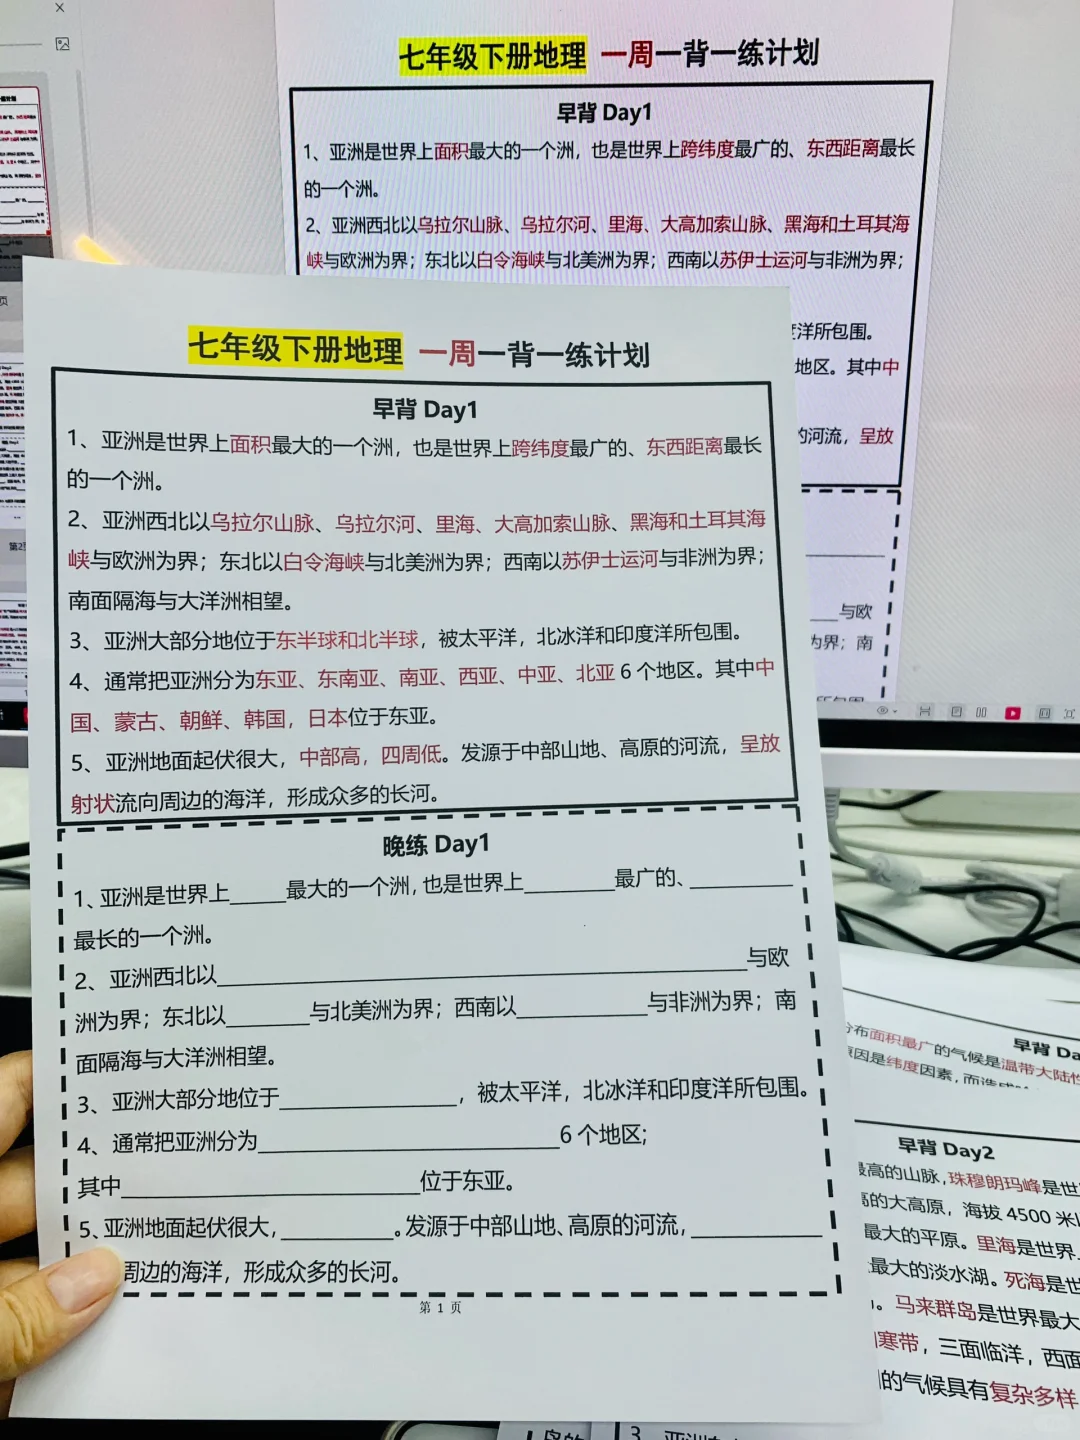 七年级下册地理 一周一背一练计划
早背 Day1
1、亚洲是世界上面积最大的一个洲，也是世界上跨纬度最广的、东西距离最长
的一个洲。
2、亚洲西北以乌拉尔山脉、乌拉尔河、里海、大高加索山脉、黑海和土耳其海
峡与欧洲为界；东北以白令海峡与北美洲为界；西南以苏伊士运河与非洲为界；
洋所包围。
地区。其中中
的河流，呈放
与欧
为界；南
七年级下册地理 一周一背一练计划
早背 Day1
1、亚洲是世界上面积最大的一个洲，也是世界上跨纬度最广的、东西距离最长
的一个洲。
2、亚洲西北以乌拉尔山脉、乌拉尔河、里海、大高加索山脉、黑海和土耳其海
峡与欧洲为界；东北以白令海峡与北美洲为界；西南以苏伊士运河与非洲为界；
南面隔海与大洋洲相望。
3、亚洲大部分地位于东半球和北半球，被太平洋，北冰洋和印度洋所包围。
4、通常把亚洲分为东亚、东南亚、南亚、西亚、中亚、北亚 6 个地区。其中中
国、蒙古、朝鲜、韩国，日本位于东亚。
5、亚洲地面起伏很大，中部高，四周低。发源于中部山地、高原的河流，呈放
射状流向周边的海洋，形成众多的长河。
晚练 Day1
1、亚洲是世界上_____最大的一个洲，也是世界上________最广的、_________
最长的一个洲。
2、亚洲西北以_______________________________________________与欧
洲为界；东北以_______与北美洲为界；西南以___________与非洲为界；南
面隔海与大洋洲相望。
3、亚洲大部分地位于_______________，被太平洋，北冰洋和印度洋所包围。
4、通常把亚洲分为__________________________6 个地区;
其中__________________________位于东亚。
5、亚洲地面起伏很大，__________。发源于中部山地、高原的河流，___________
周边的海洋，形成众多的长河。
第 1 页
分布面积最广的气候是温带大陆性
原因是纬度因素，而造成
早背 Day2
最高的山脉，珠穆朗玛峰是世
高的大高原，海拔 4500 米
最大的平原。里海是世界
最大的淡水湖。死海是世
马来群岛是世界最大
寒带，三面临洋，西面
的气候具有复杂多样